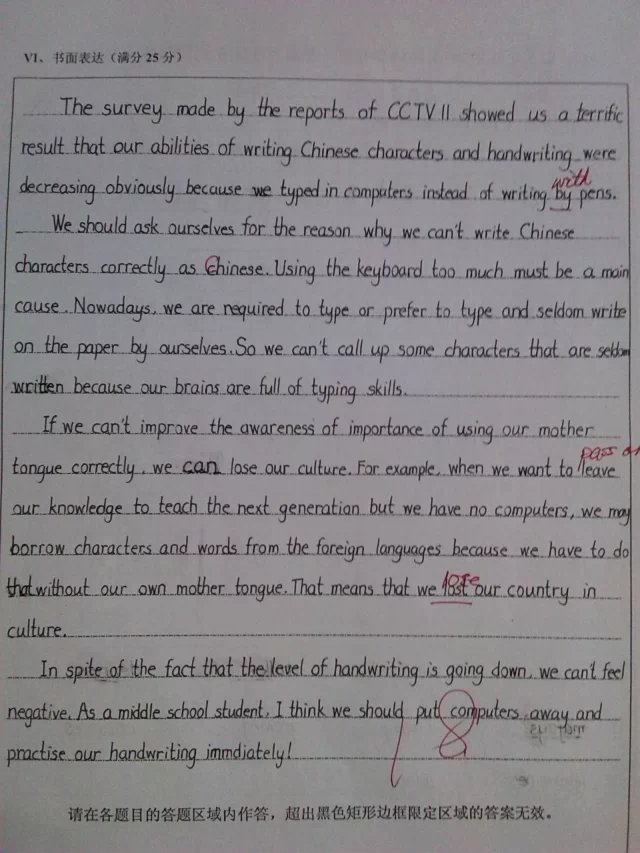 VI、书面表达（满分 25 分）
The survey made by the reports of CCTV 11 showed us a terrific
result that our abilities of writing Chinese characters and handwriting were
decreasing obviously because we typed in computers instead of writing by pens.
with
We should ask ourselves for the reason why we can't write Chinese
characters correctly as Chinese. Using the keyboard too much must be a main
cause. Nowadays, we are required to type or prefer to type and seldom write
on the paper by ourselves. So we can't call up some characters that are seldom
written because our brains are full of typing skills.
If we can't improve the awareness of importance of using our mother
pass on
tongue correctly, we can lose our culture. For example, when we want to leave
our knowledge to teach the next generation but we have no computers, we may
borrow characters and words from the foreign languages because we have to do
that without our own mother tongue. That means that we lost our country in
lose
culture.
In spite of the fact that the level of handwriting is going down, we can't feel
negative. As a middle school student, I think we should put computers away and
18
practise our handwriting immdiately!
请在各题目的答题区域内作答，超出黑色矩形边框限定区域的答案无效。